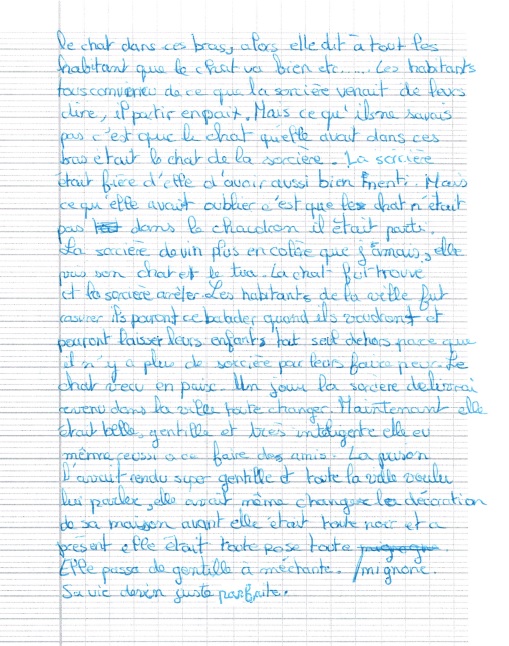 le chat dans ces bras, alors elle dit à tout les
habitant que le chat va bien etc...... Les habitants
tous convaincu de ce que la sorcière venait de leurs
dire, il partir en paix. Mais ce qu'ils ne savais
pas c'est que le chat qu'elle avait dans ces
bras était le chat de la sorcière. La sorcière
était fière d'elle d'avoir aussi bien menti. Mais
ce qu'elle avait oublier c'est que les chat n'était
pas dans le chaudron il était partis.
La sorcière devin plus en colère que jamais, elle
pris son chat et le tua. La chat fut trouve
et la sorcière arrêter. Les habitants de la ville fut
rasurer ils pouront ce balader quand ils voudront et
pouront laisser leurs enfants tout seul dehors parce que
il n'y a plu de sorcière par leurs faire peur. Le
chat vecu en paix. Un jour la sorcere delivrai
revenu dans la ville toute changer. Maintenant elle
était belle, gentille et très inteligente elle eu
même reussi a ce faire des amis. La prison
l'avait rendu super gentille et toute la ville voulu
lui parler, elle avait même changer la décoration
de sa maison avant elle était toute noir et a
présent elle était toute rose toute
Elle passa de gentille à méchante. / mignone.
Sa vie devin juste parfaite.